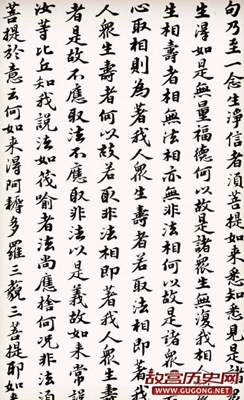 句乃至一念生淨信者須菩提如來悉知悉見是諸
生得如是無量福德何以故是諸衆生無復我相
生相壽者相無法相亦無非法相何以故是諸衆
心取相則為著我人衆生壽者若取法相即著我
人衆生壽者何以故若取非法相即著我人衆生壽
者是故不應取法不應取非法以是義故如來常說
汝等比丘知我說法如筏喻者法尚應捨何況非法須
菩提於意云何如來得阿耨多羅三藐三菩提耶如
故宫历史网
WWW.GUGONG.NET